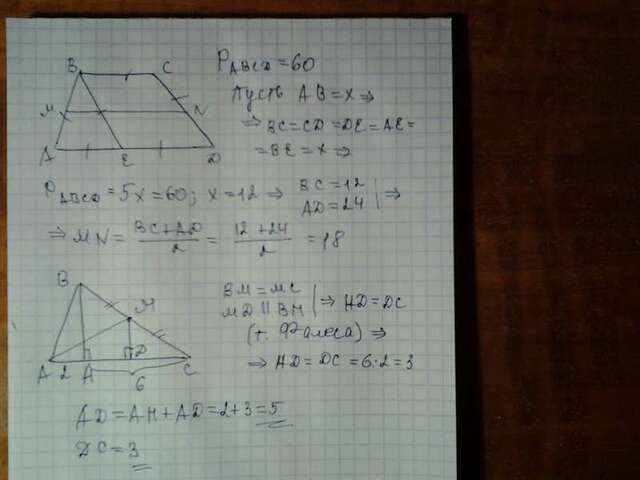 B C
M N
A E D
P ABCD = 60
Пусть AB = x ⇒
⇒ BC = CD = DE = AE =
= BE = x ⇒
P ABCD = 5x = 60; x = 12 ⇒ BC = 12
AD = 24 ⇒
⇒ MN = BC + AD / 2 = 12 + 24 / 2 = 18
B
M
A 2 H D C
6
BM = MC
MD || BH ⇒ HD = DC
(т. Фалеса) ⇒
⇒ HD = DC = 6:2 = 3
AD = AH + AD = 2 + 3 = 5
DC = 3